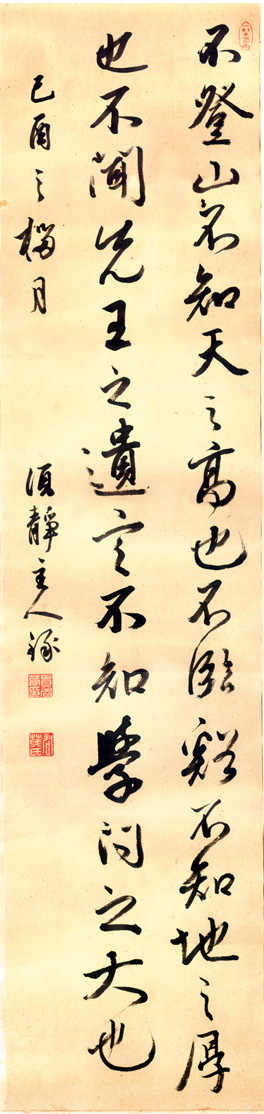 不登山不知天之高也不臨谿不知地之厚
也不聞先王之遺言不知學問之大也
己酉之榴月
須靜主人